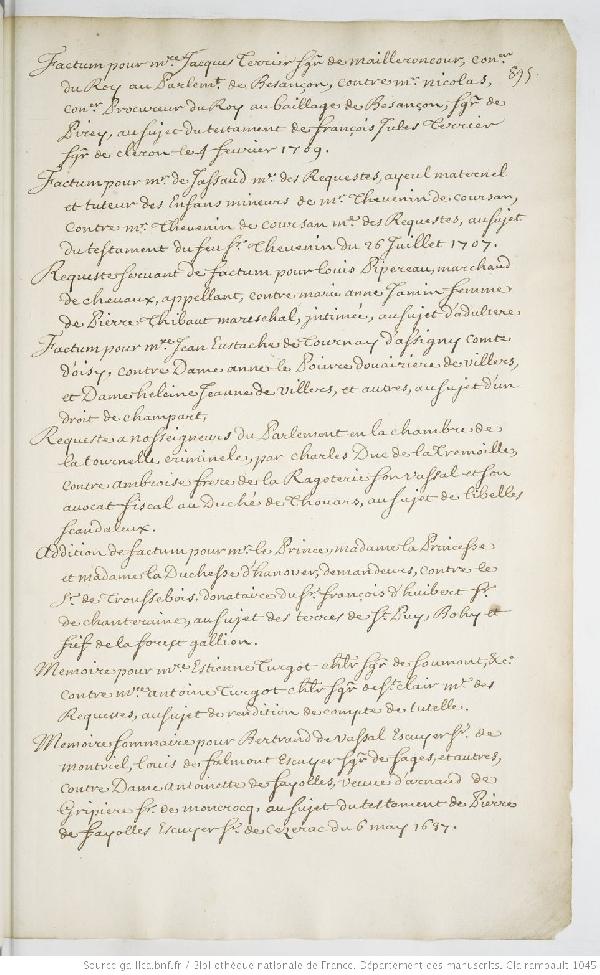 Factum pour mre Jacques Terrier sgr de mailleroncour, coner
895.
du Roy au Parlemt de Besançon, contre mr nicolas,
coner Procureur du Roy au baillage de Besançon, sgr de
Pirey, au sujet du testament de françois Jules Terrier
sgr de cleron le 4 fevrier 1709.
Factum pour mr de Jassaud mr des Requestes, ayeul maternel
et tuteur des Enfans mineurs de mr Thevenin de coursan,
contre mr Thevenin de coursan mr des Requestes, au sujet
du testament du feu sr Thevenin du 26 Juillet 1707.
Requeste servant de factum pour louis Pipereau, marchand
de chevaux, appellant, contre marie anne Jamin femme
de Pierre Thibaut mareschal, intimée, au sujet d'adultere
Factum pour mre Jean Eustache de Tournay d'assigny comte
d'oisy, contre Dame anne le Poivre douairiere de villers,
et Dame heleine Jeanne de villers, et autres, au sujet d'un
droit de champart,
Requeste a nosseigneurs du Parlement en la chambre de
la tournelle criminele, par charles Duc de la Tremoille,
contre ambroise frere de la Ragoterie son vassal et son
avocat fiscal au Duché de Thouars, au sujet de libelles
scandaleux.
Addition de factum pour mr le Prince, madame la Princesse
et madame la Duchesse d'hanover, demandeurs, contre le
sr de Troussebois, donataire du sr françois d'huibert sr
de chanteraine, au sujet des terres de St Puy, Bohy et
fief de la forest gallion.
Memoire pour mre Estienne Turgot chlr sgr de soumont, &c.
contre mre antoine Turgot chlr sgr de St clair mr des
Requestes, au sujet de reddition de compte de tutelle.
Memoire sommaire pour Bertrand de vassal Escuyer sr de
montviel, louis de falmont Escuyer sgr de sages, et autres,
contre Dame antoinette de fayolles, veuve d'arnaud de
Gripiere sr de moncrocq, au sujet du testament de Pierre
de fayolles Escuyer sr de cezerac du 6 may 1637.
Source gallica.bnf.fr / Bibliothèque nationale de France. Département des manuscrits. Clairambault 1045